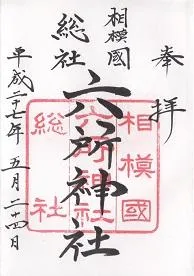 奉拝
相模國
総社
六所神社
平成二十七年五月二十四日
相模國
六所神社
総社